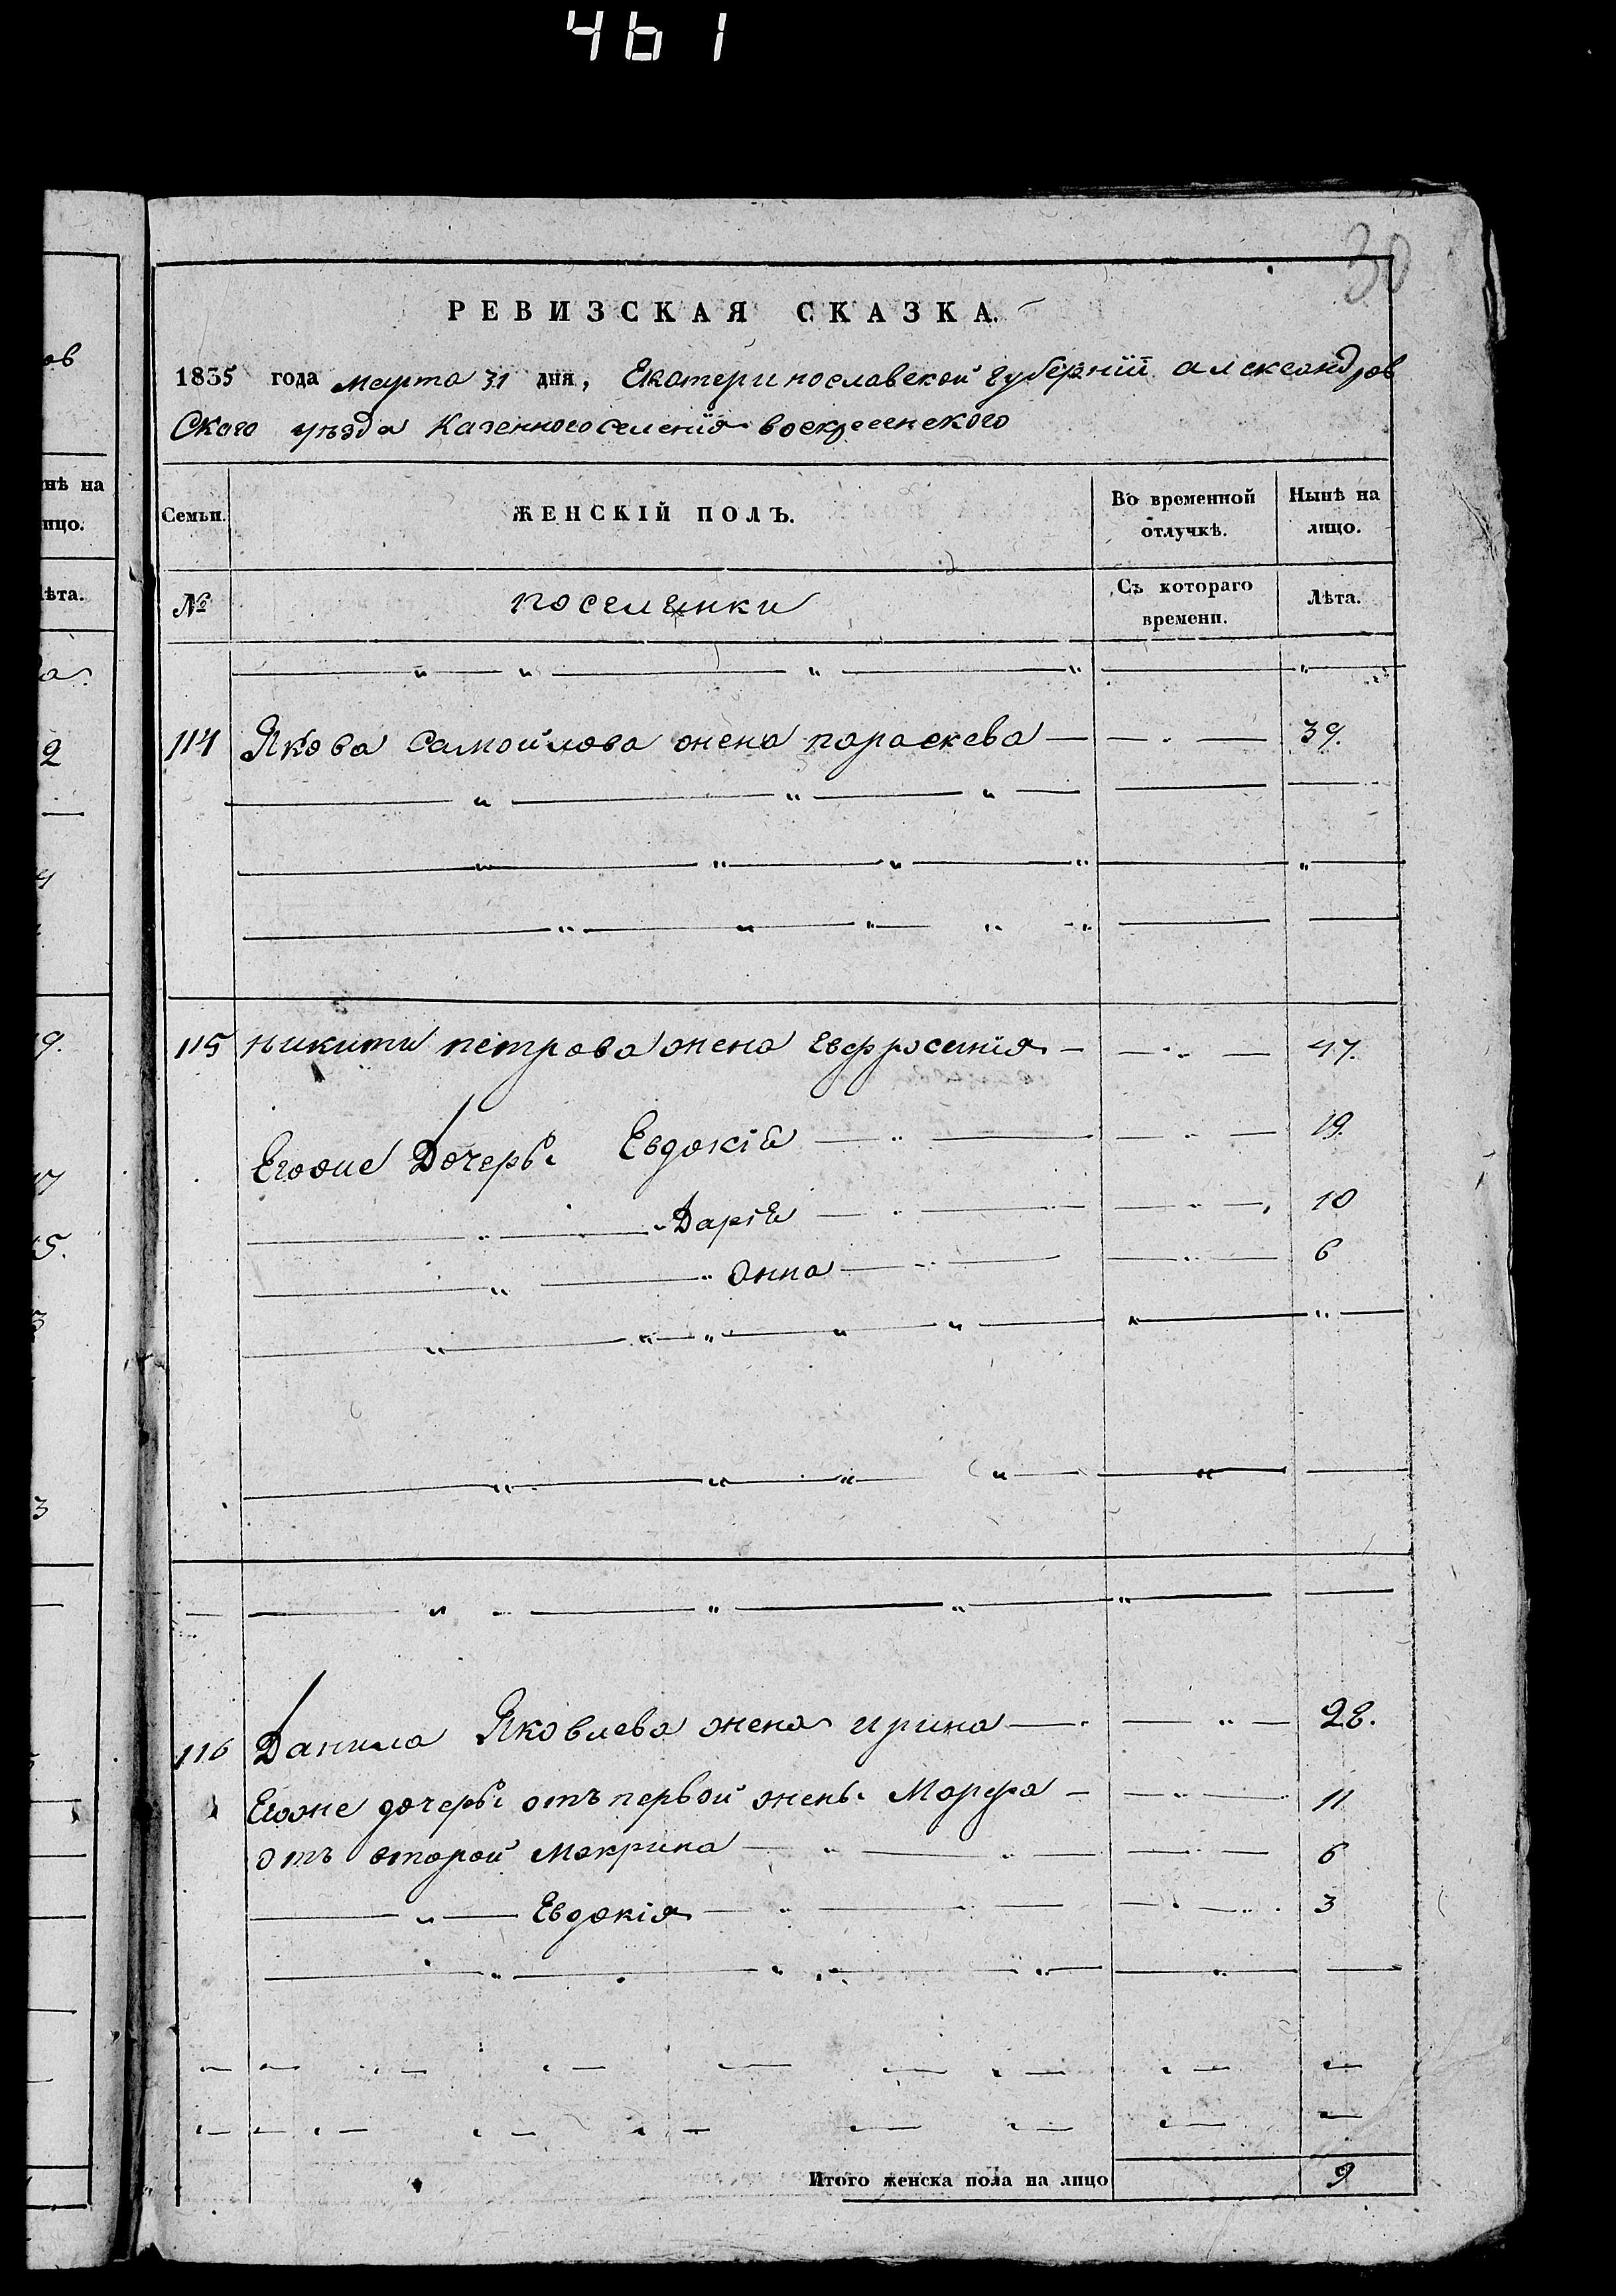 461
30
РЕВИЗСКАЯ СКАЗКА.
1835 года марта 31 дня, Екатеринославской губернїй александров
Скаго уъзда Казенного селенїя воскресенского
Семьи. ЖЕНСКІЙ ПОЛЪ. Во временной отлучкѣ. Нынѣ на лицо.
№ поселянки Съ котораго времени. Лѣта.
114 Якова Самойлова жена параскева 39.
115 никиты петрова жена Евфросинія 47.
Егоже Дочеры Евдокія 19.
Дарія 10
Анна 6
116 Данила Яковлева жена ирина 28.
Егоже дочеры отъ первой жены Марфа 11
отъ второй Макрина 6
Евдокія 3
Итого женска пола на лицо 9
ов
нѣ на
ицо.
ѣта.
2
9.
5.
3
3